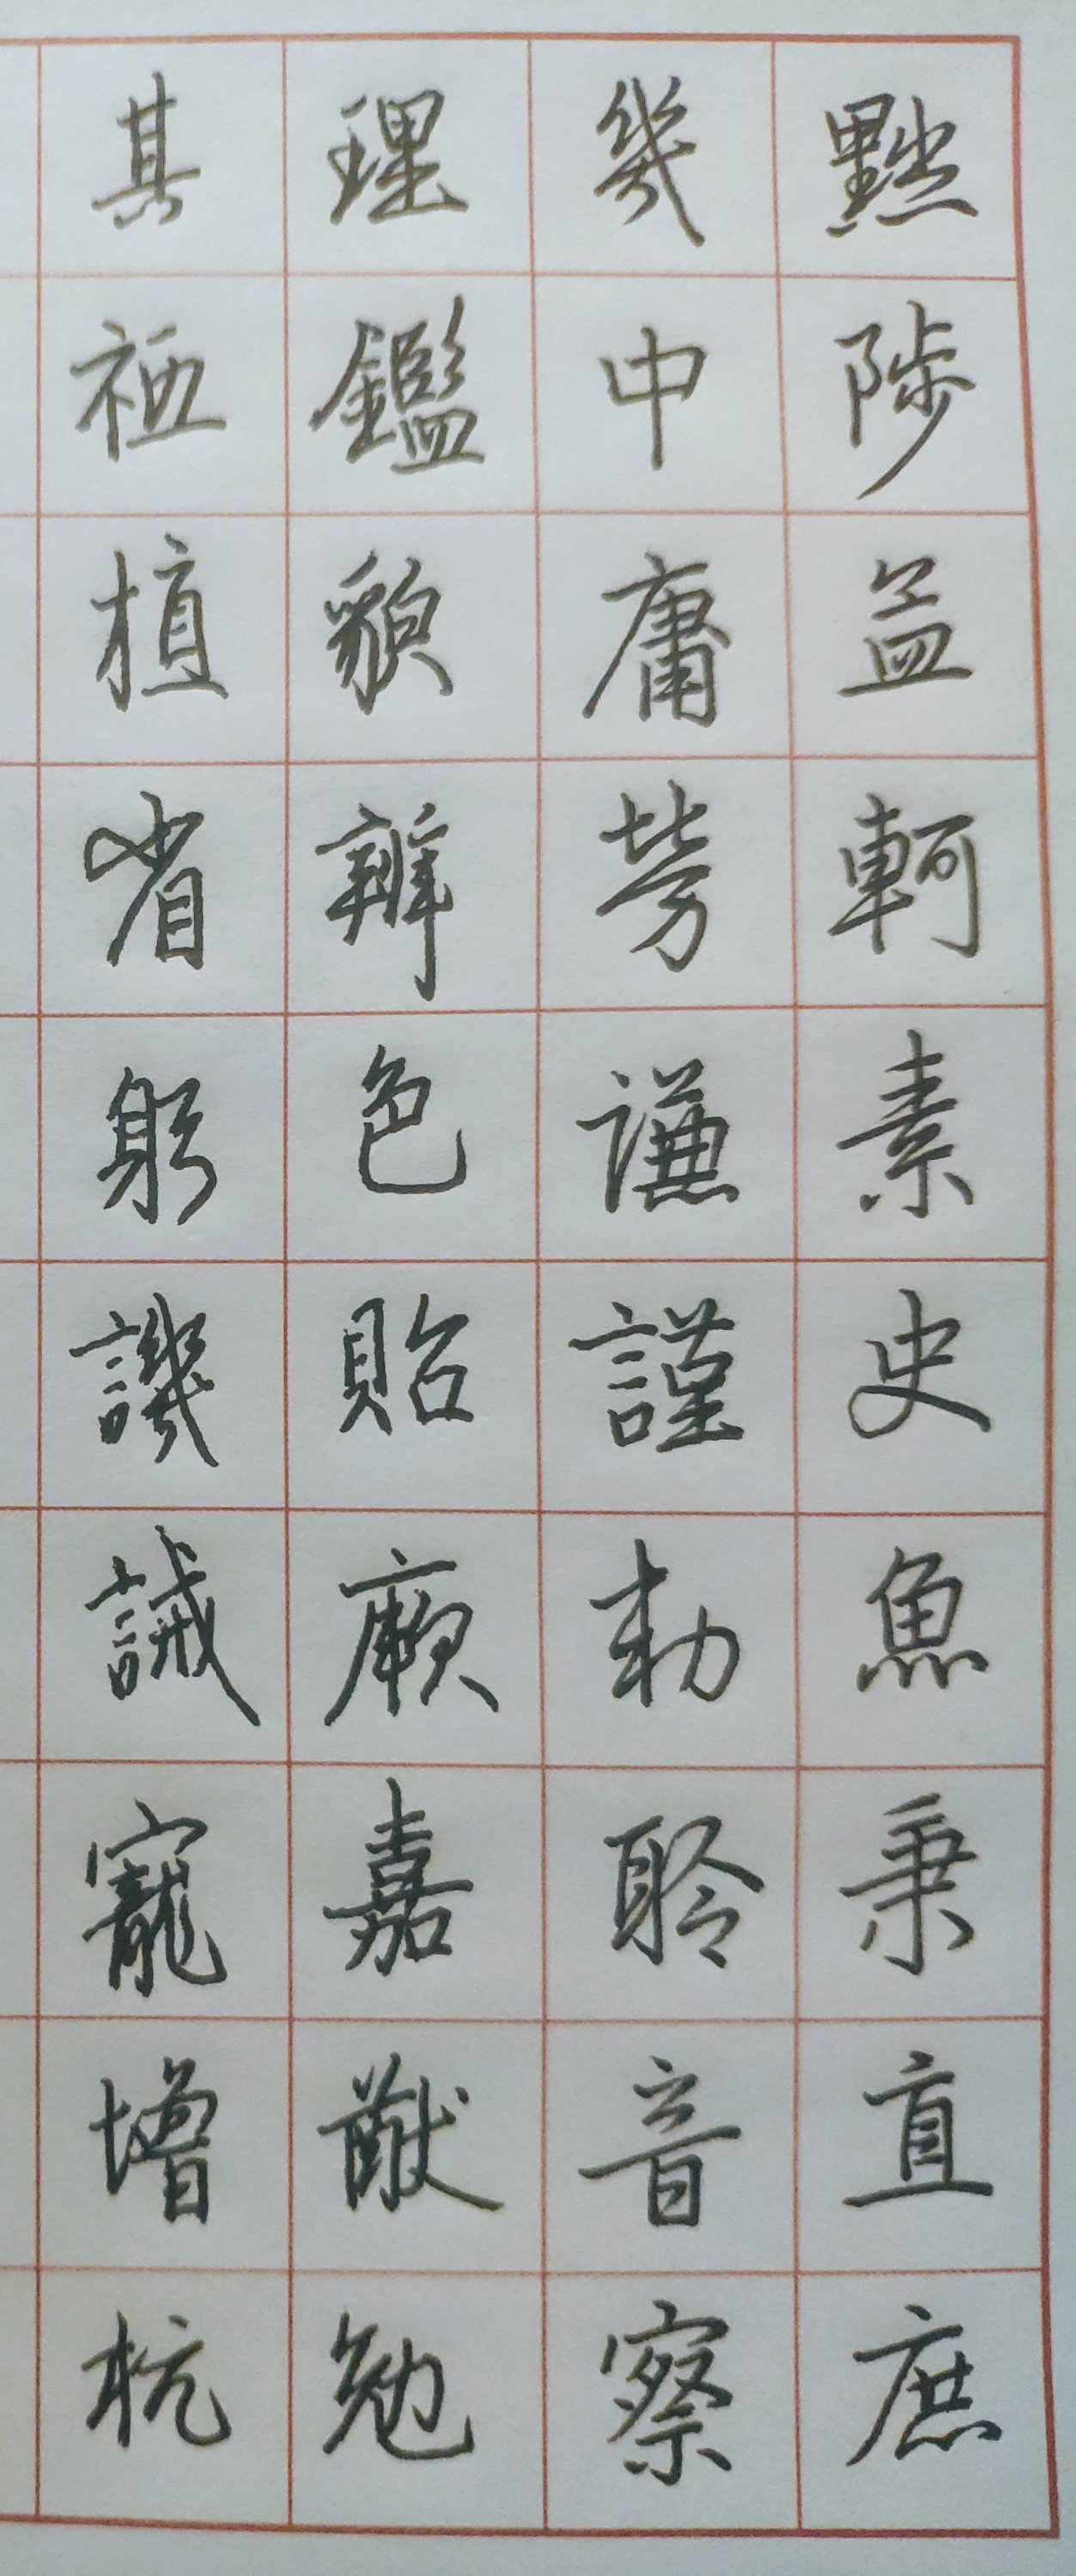 黜陟孟軻素史魚秉直庶
幾中庸勞謙謹勑聆音察
理鑑貌辨色貽厥嘉猷勉
其祗植省躬譏誡寵增抗